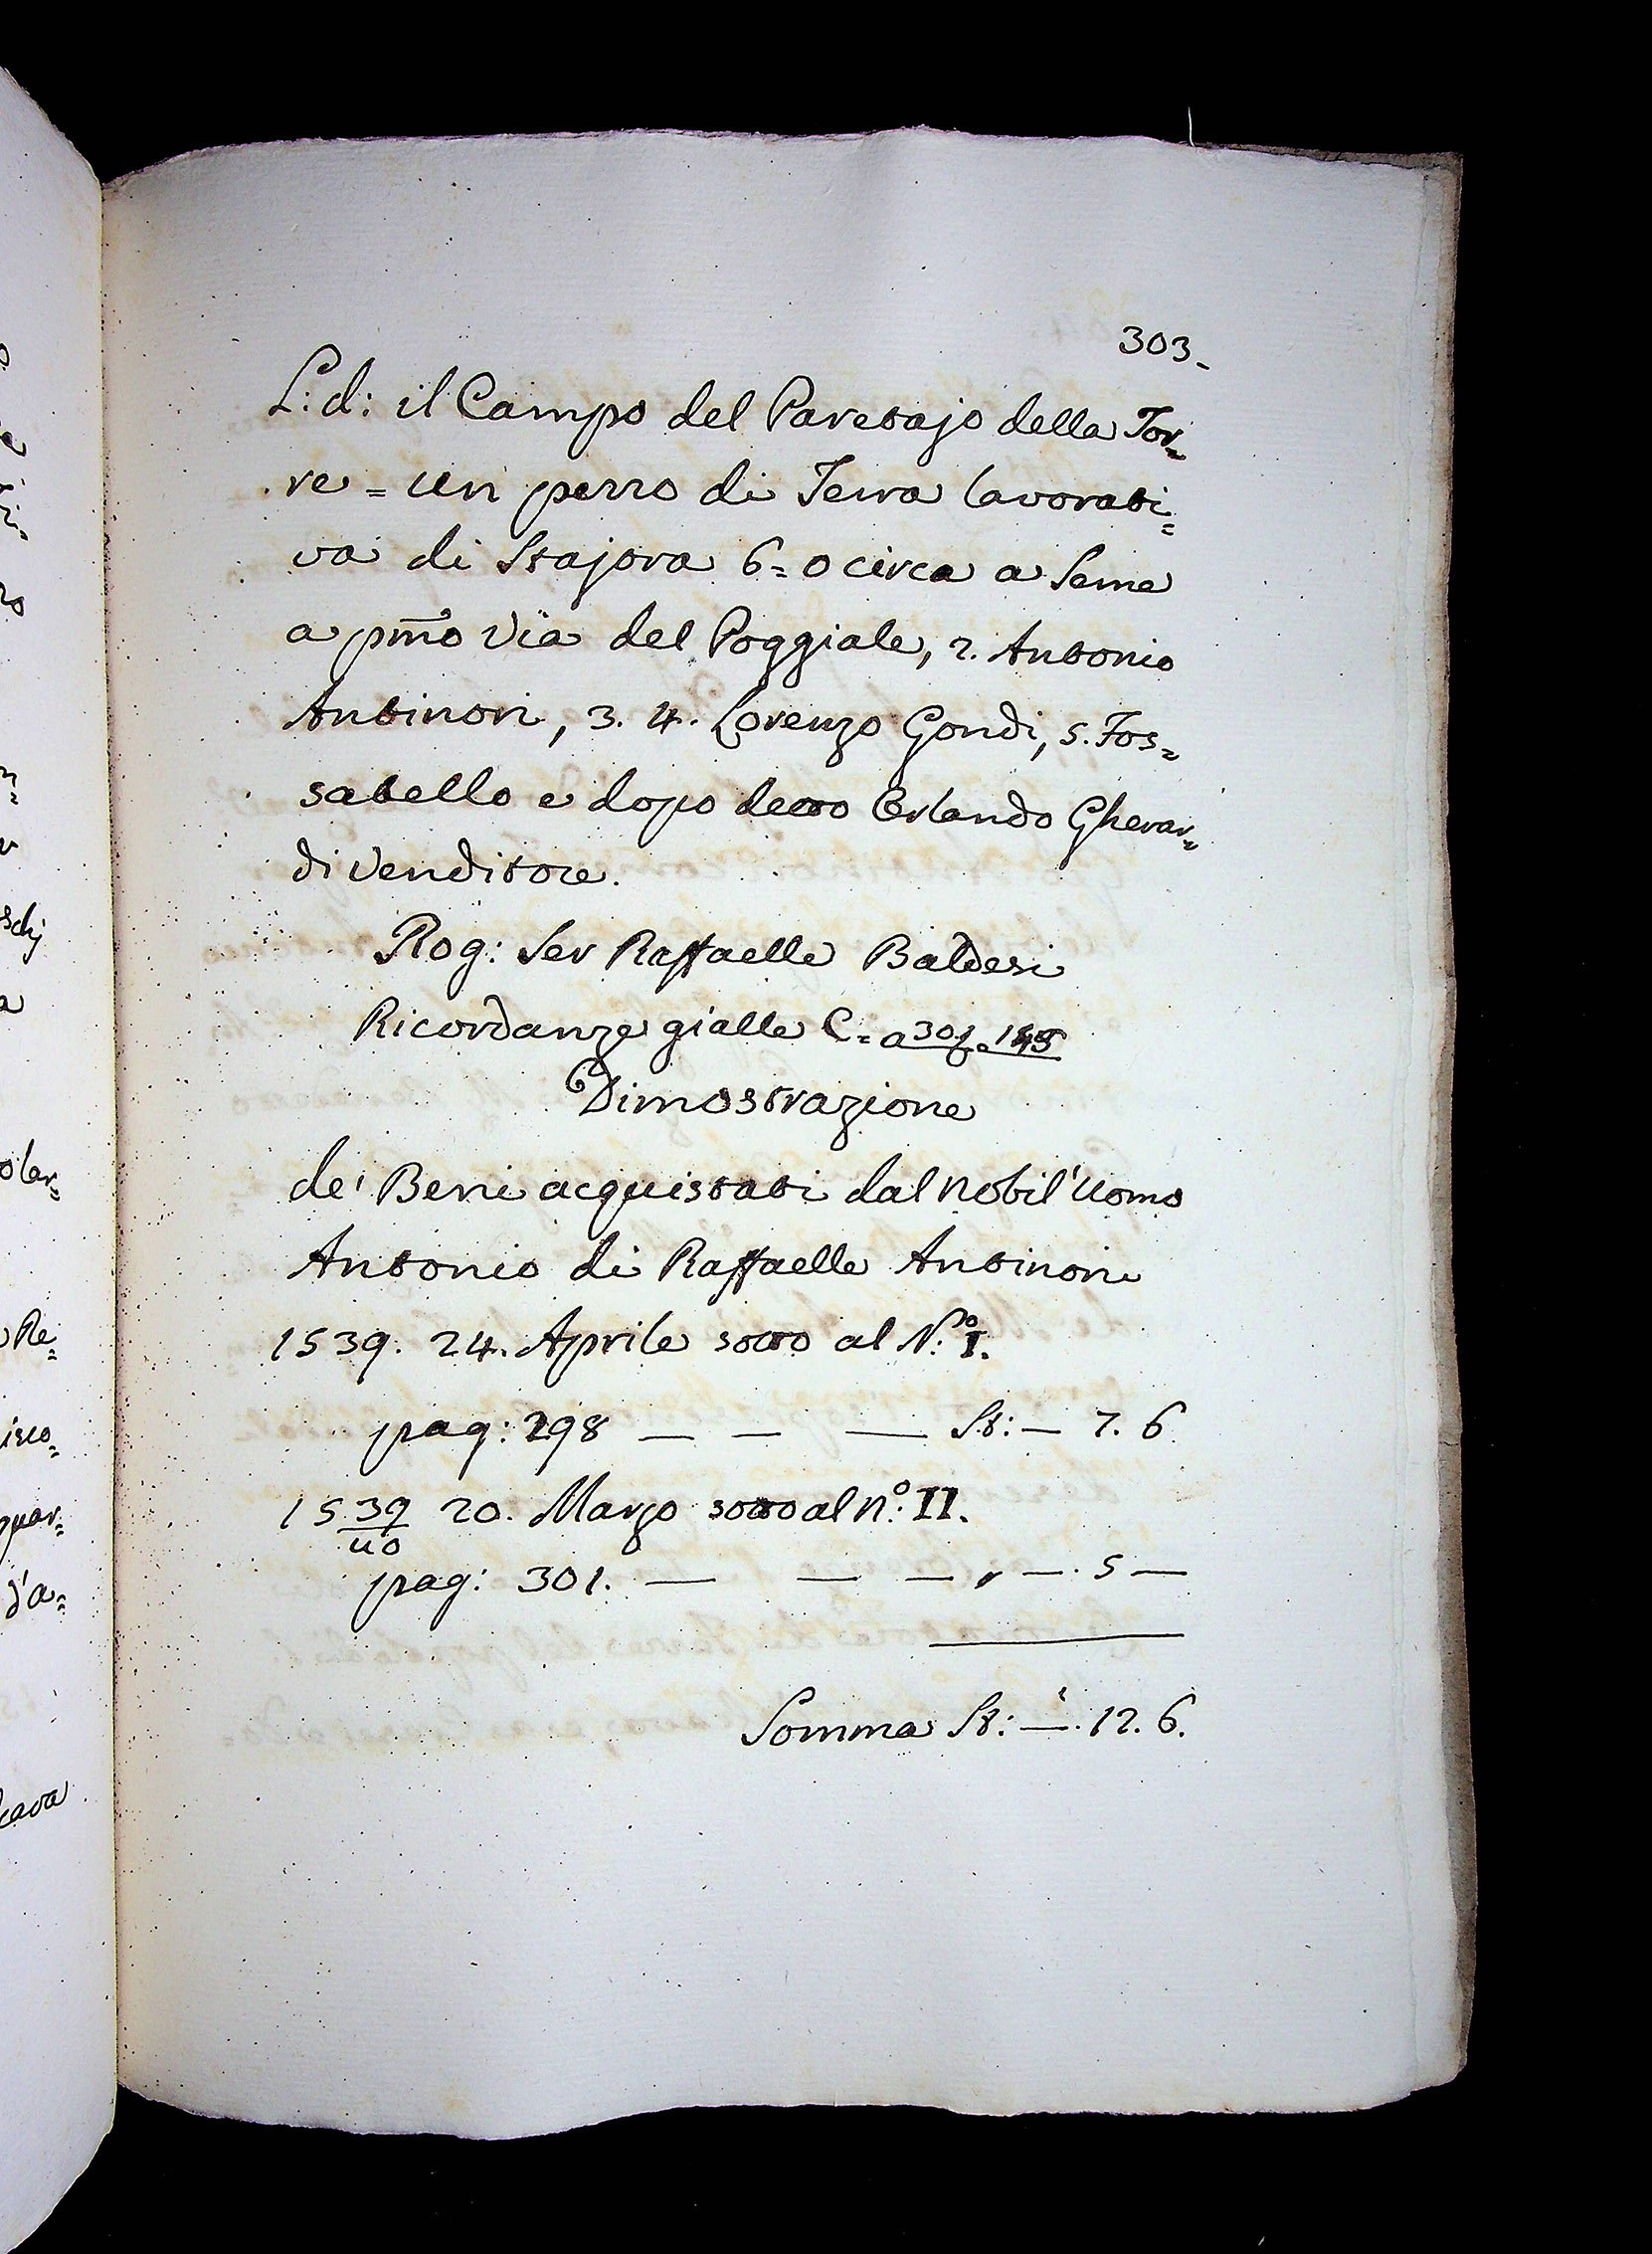 303.
L: d: il Campo del Paretajo della Tor=
re = un pezzo di Terra lavorati=
va di Stajora 6=0 circa a Seme
a pmo Via del Poggiale, 2. Antonio
Antinori, 3. 4. Lorenzo Gondi, 5. Fos=
satello e dopo detto Orlando Gherar=
di Venditore.
Rog: Ser Raffaelle Baldesi
Ricordanze gialle C= a 301.
Dimostrazione
de' Beni acquistati dal nobil'Uomo
Antonio di Raffaelle Antinori
1539. 24. Aprile sotto al N.º I.
pag: 298 — — — St: — 7. 6
1539 20. Marzo sotto al n.º II.
40
pag: 301. — — — — . 5 —
Somma St: — . 12. 6.